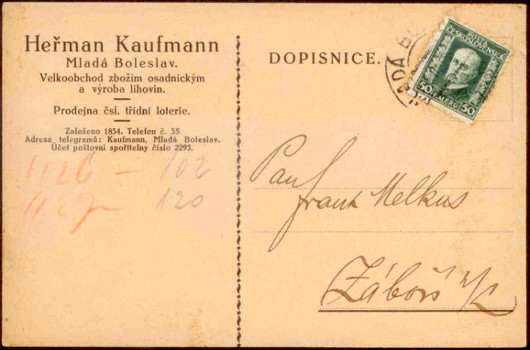 Heřman Kaufmann
Mladá Boleslav.
Velkoobchod zbožím osadnickým
a výroba lihovin.
Prodejna čsl. třídní loterie.
Založeno 1834. Telefon č. 55.
Adresa telegramů: Kaufmann, Mladá Boleslav.
Účet poštovní spořitelny číslo 2293.
1126 — 102
120
DOPISNICE.
POŠTA
ČESKOSLOVENSKO
50 HALÉŘŮ 50
Pan
Franz Melkus
Záboří n/L